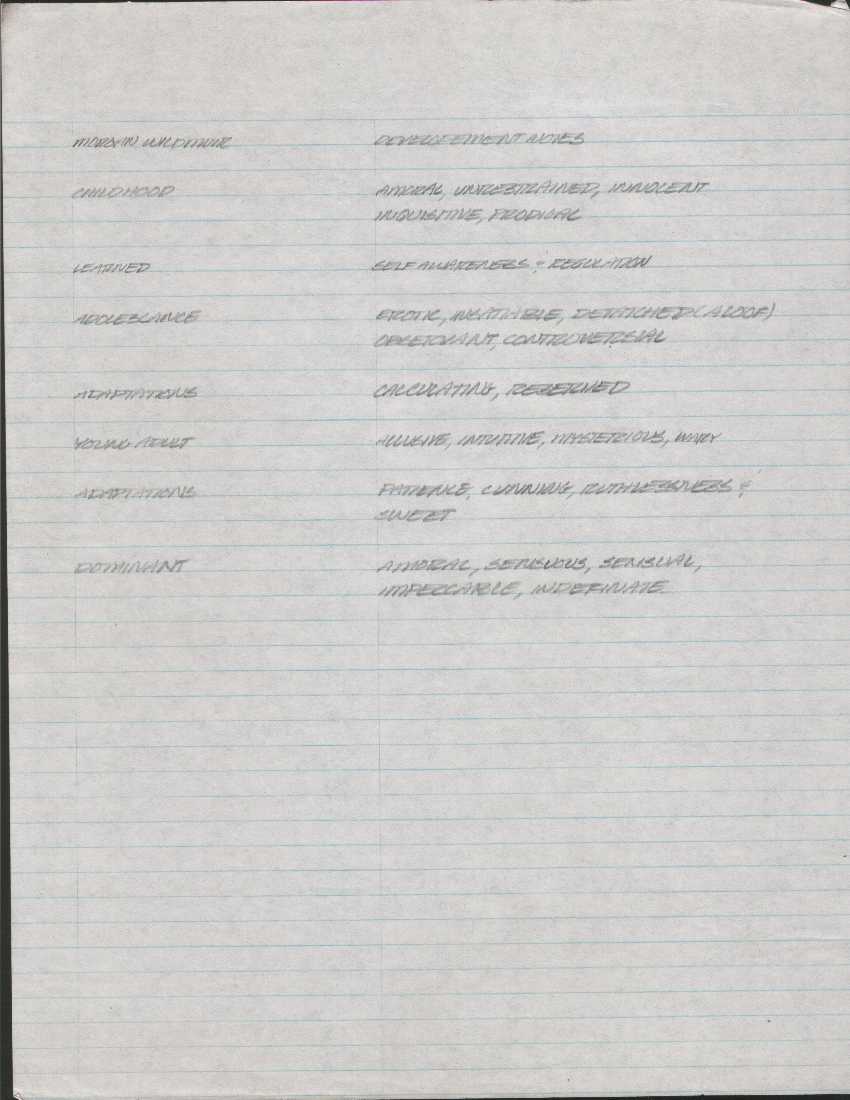 MORGAN WILDMUIR DEVELOPEMENT NOTES
CHILDHOOD AMORAL, UNRESTRAINED, INNOCENT
INQUISITIVE, PRODIGAL
LEARNED SELF AWARENESS & REGULATION
ADOLESCANCE EROTIC, INSATIABLE, DETATCHED (ALOOF)
OBSERVANT, CONTROVERSIAL
ADAPTATIONS CALCULATING, RESERVED
YOUNG ADULT ALLUSIVE, INTUITIVE, MYSTERIOUS, WARY
ADAPTATIONS PATIENCE, CUNNING, RUTHLESSNESS &
SWEET
DOMINANT AMORAL, SENSUOUS, SENSUAL,
IMPECCABLE, INDEFINATE